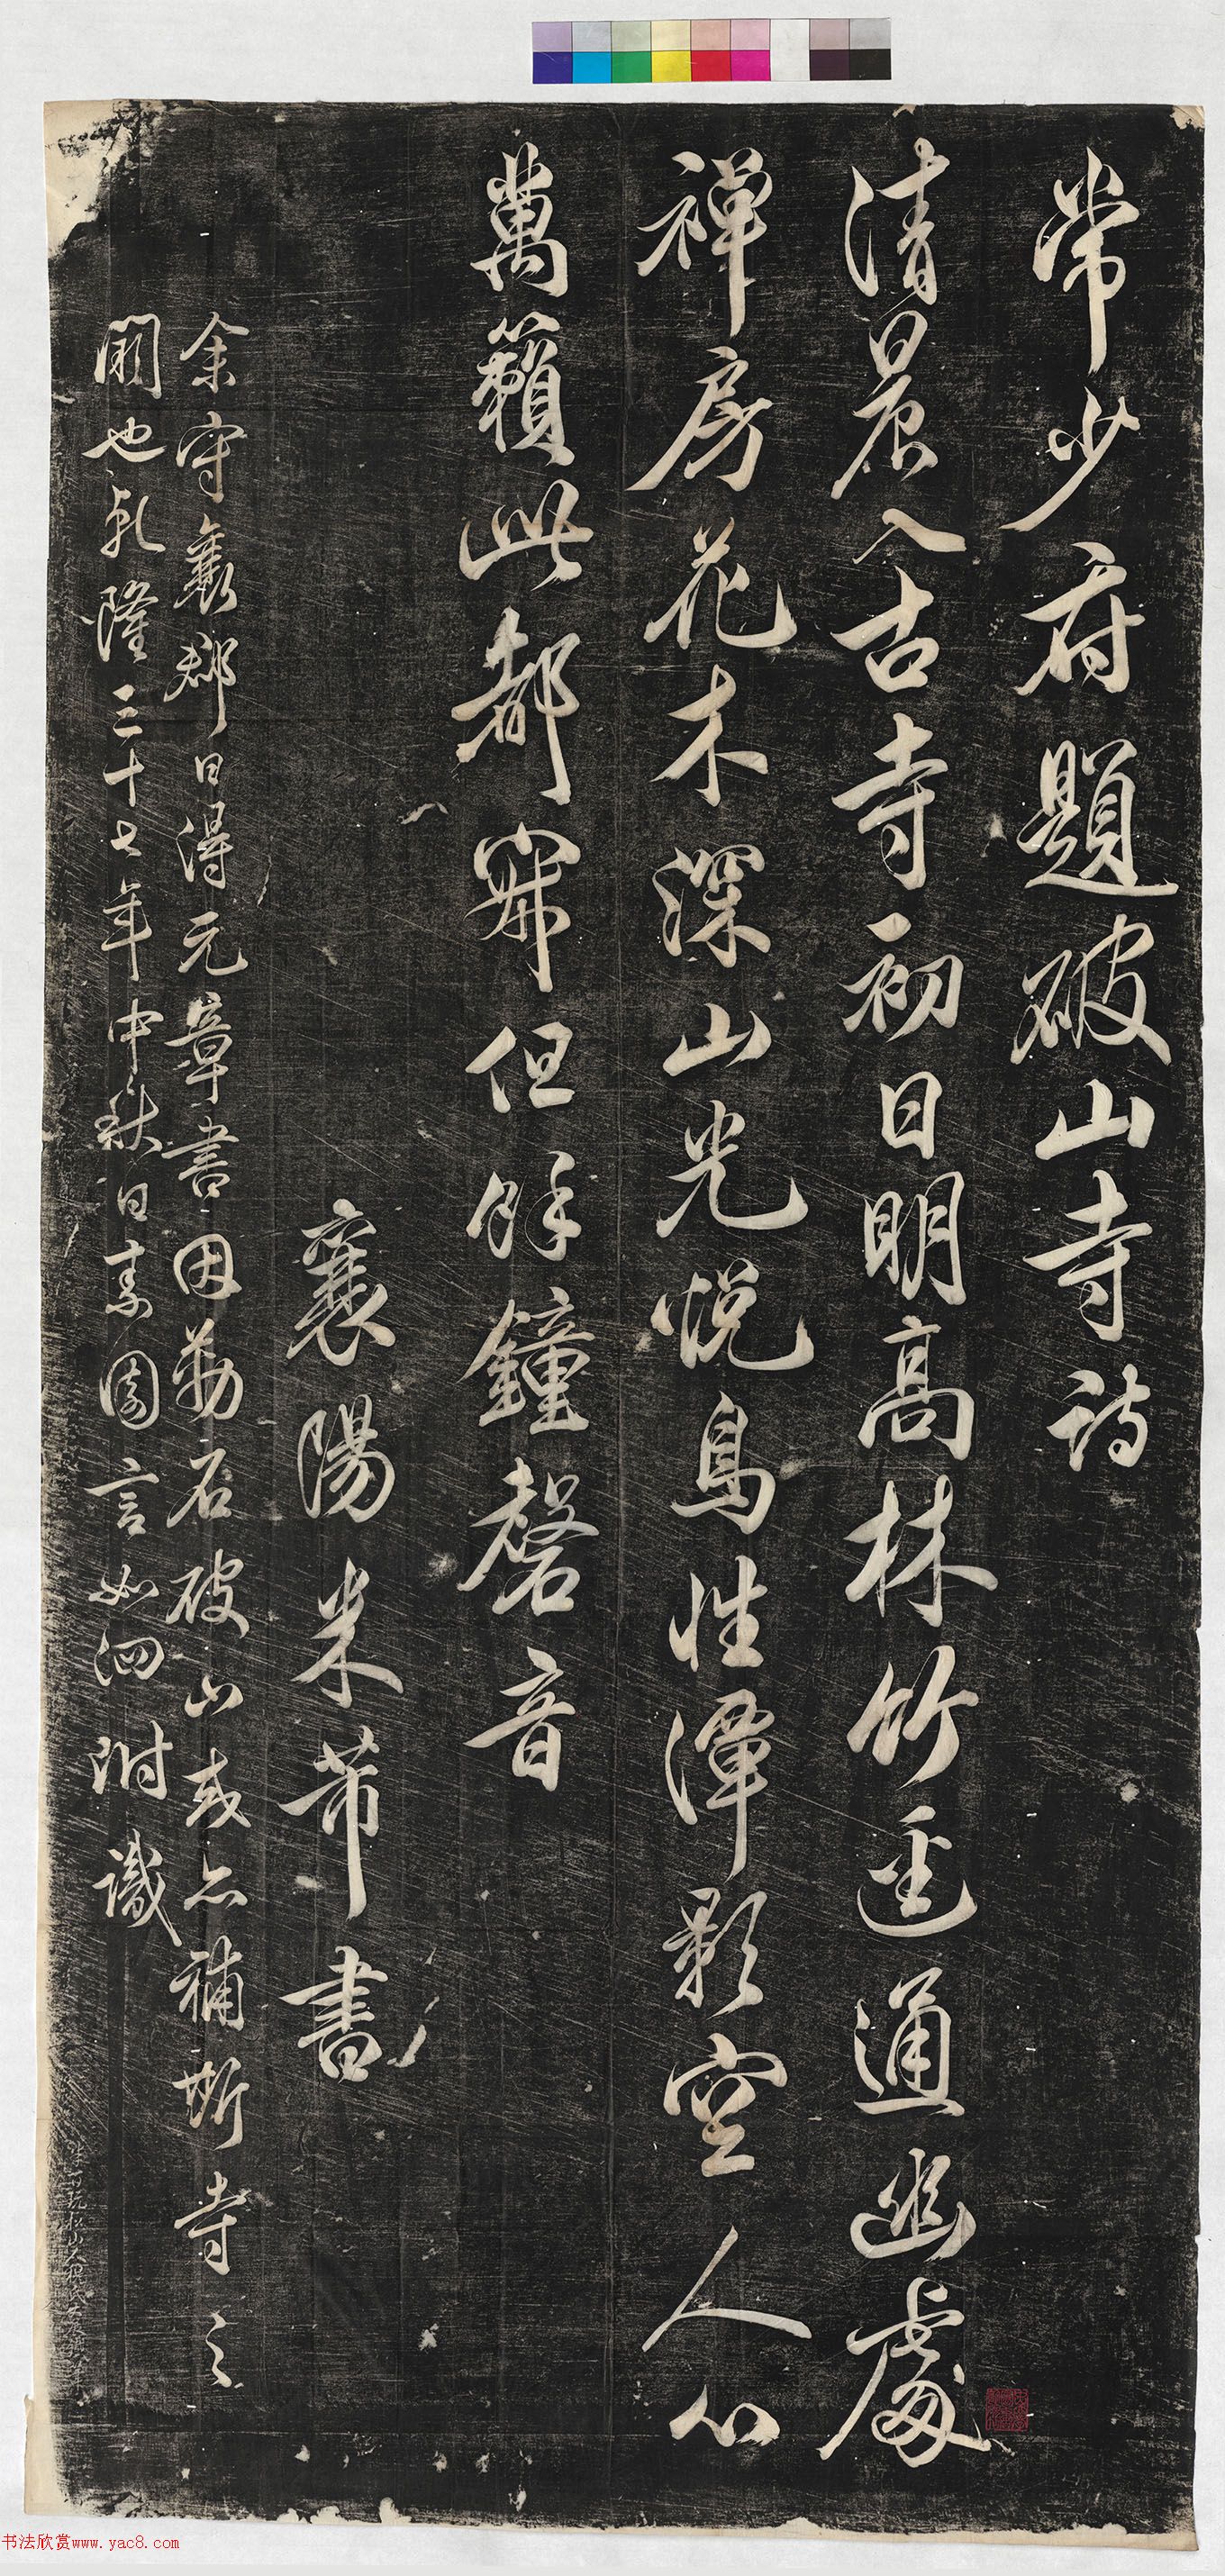 常少府題破山寺詩
清晨入古寺初日明高林竹迳通幽處
禅房花木深山光悦鳥性潭影空人心
萬籟此都寂但餘鐘磬音
襄陽米芾書
余守襄郡日得元章書因勒石破山或亦補斯寺之
闕也乾隆三十七年中秋日素園言如泗附識
书法欣赏www.yac8.com